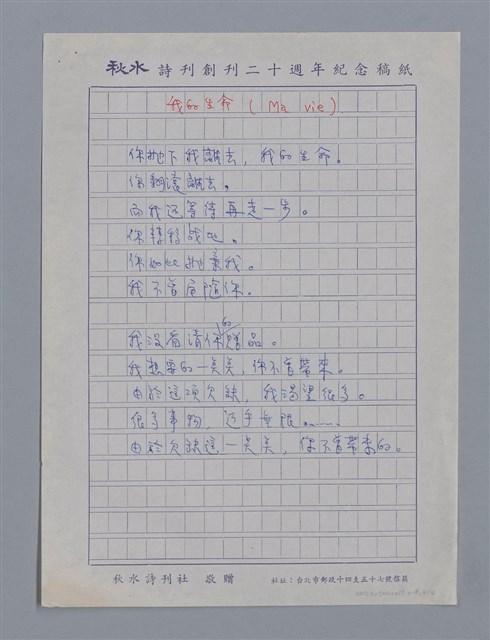 秋水 詩刊創刊二十週年紀念稿紙
我的生命（Ma vie）
你抛下我離去，我的生命。
你翻滾離去。
而我还等待再走一步。
你轉移战地。
你如此抛棄我。
我不曾尾隨你。
我没看清你的贈品。
我想要的一点点，你不曾帶來。
由於這項欠缺，我渴望很多。
很多事物，近乎無限……
由於欠缺這一点点，你不曾帶來的。
秋水詩刊社 敬贈
社址：台北市郵政十四支五十七號信箱